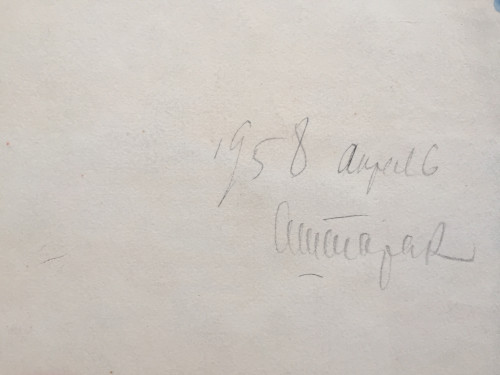 1958 Апрель
Аштарак